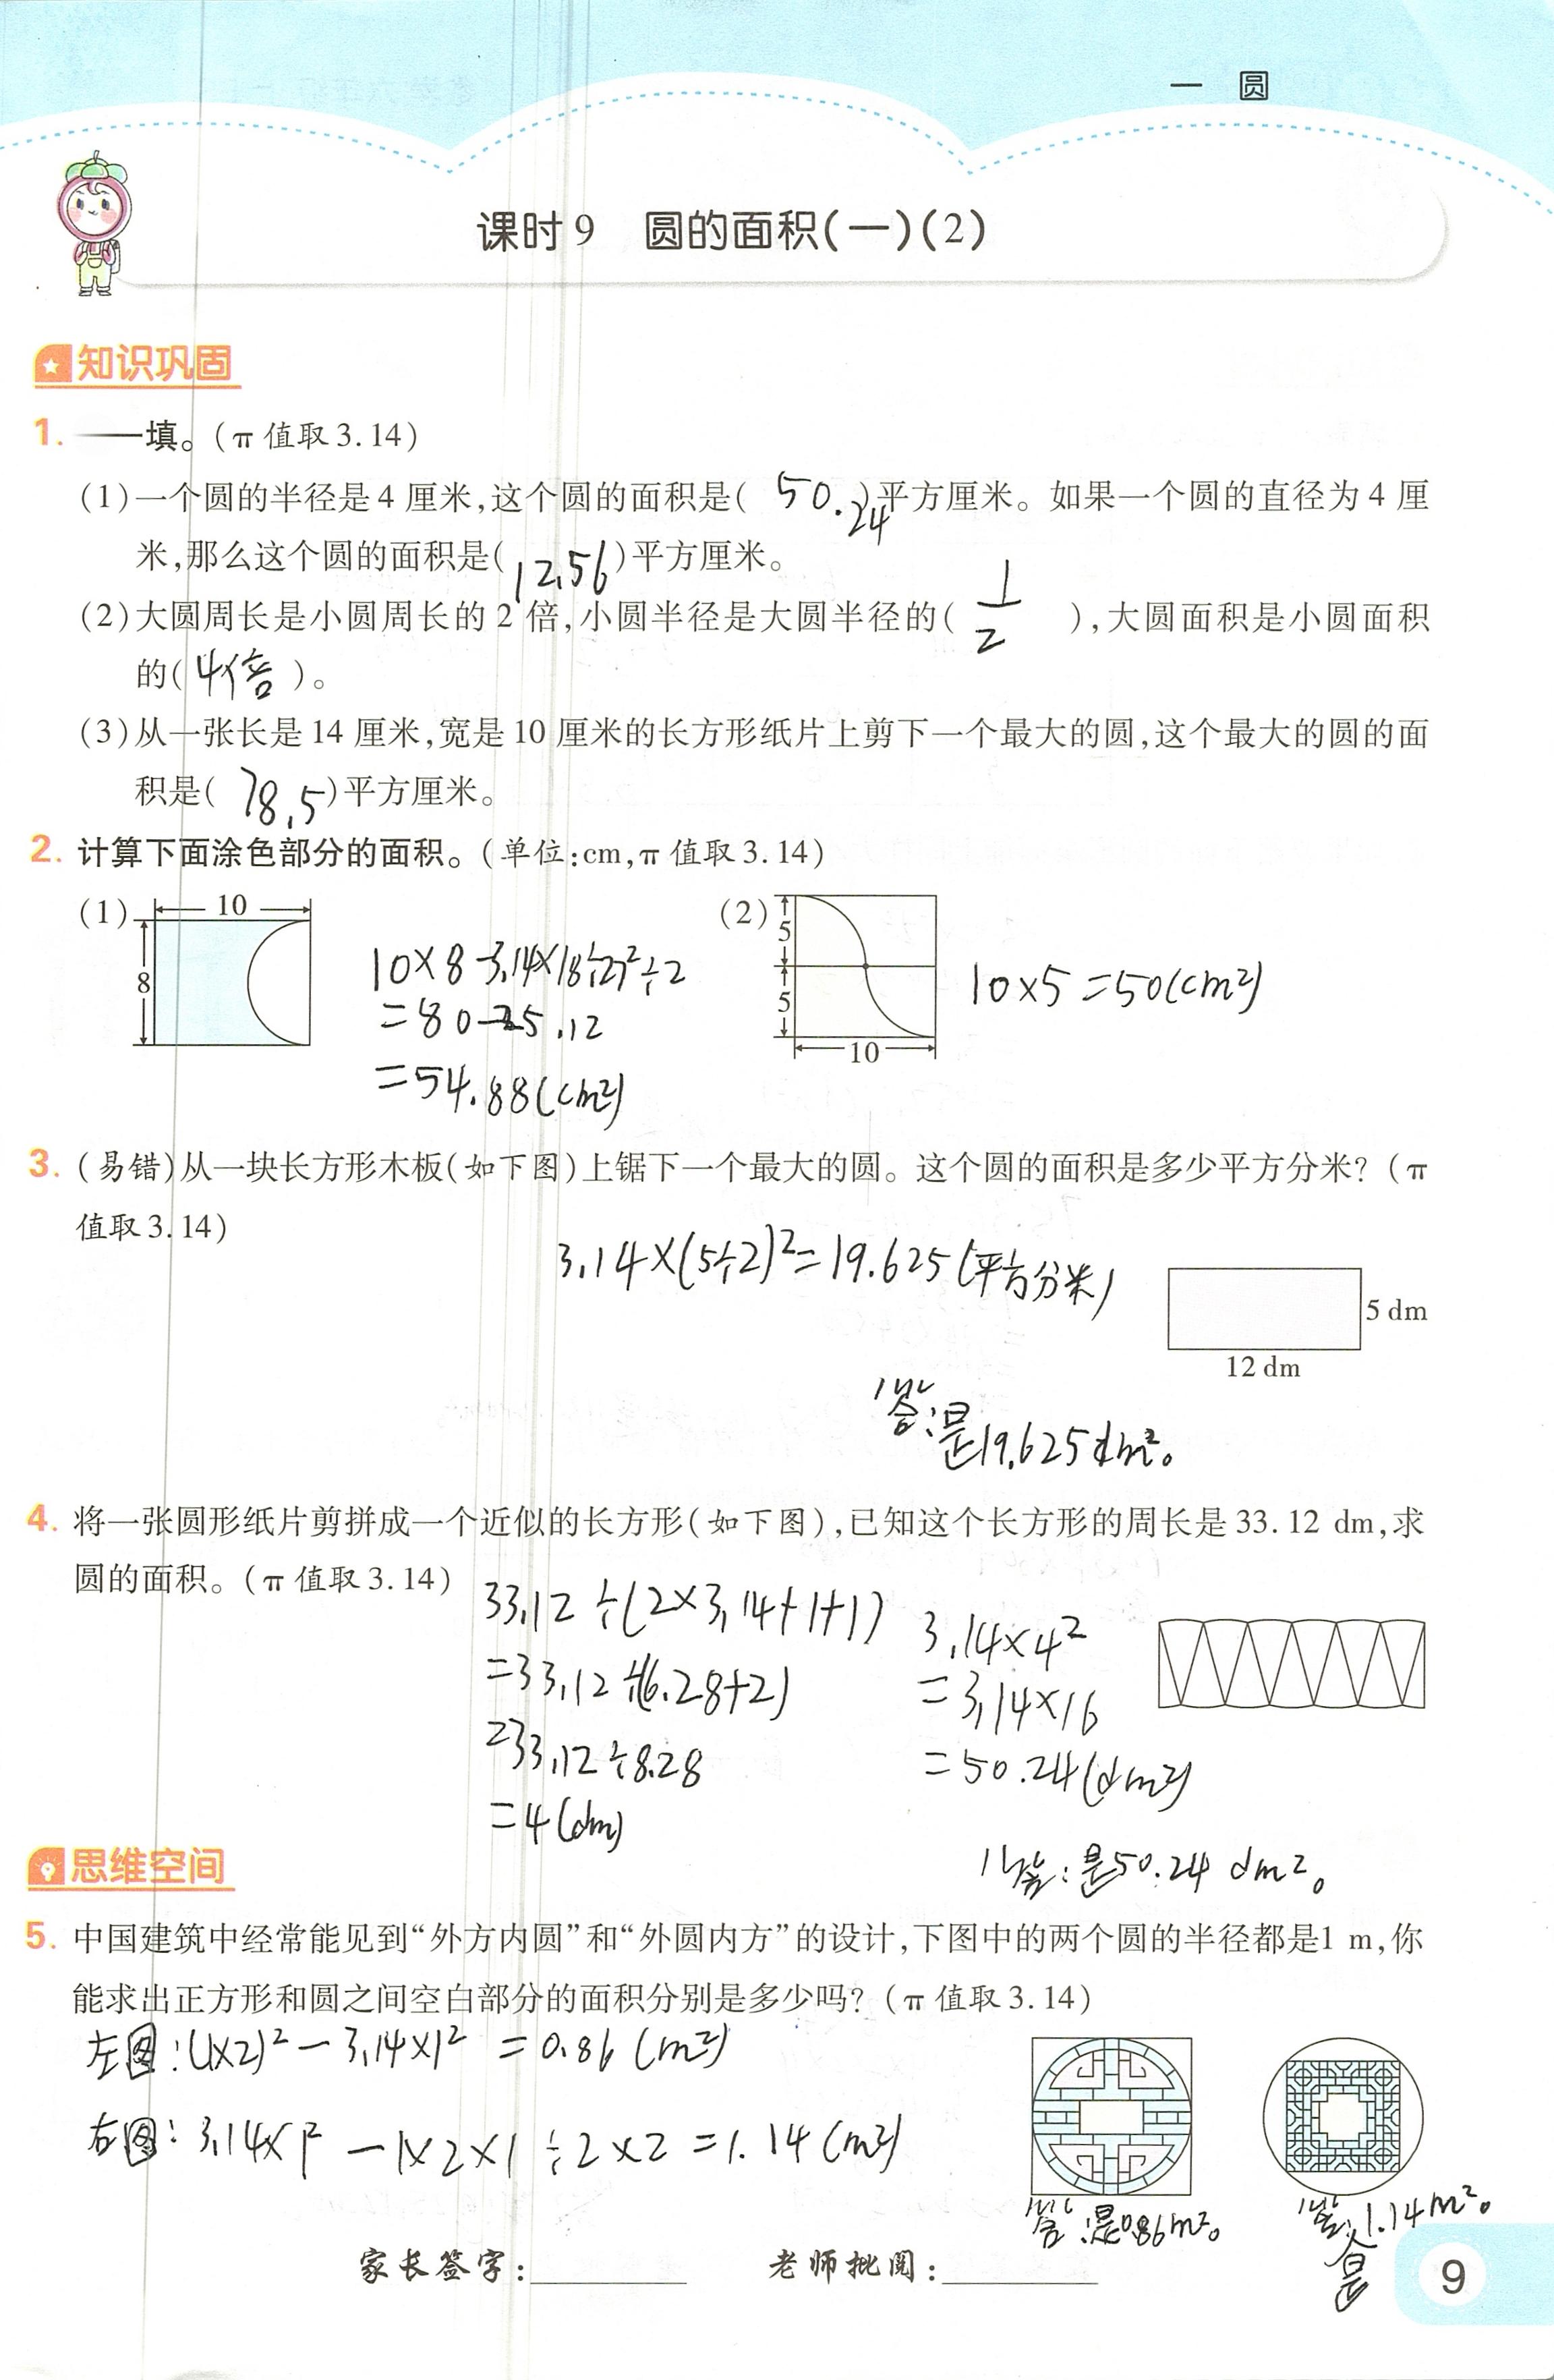 一 圆
课时9 圆的面积(一)(2)
知识巩固
1. 一一填。(π值取3.14)
(1)一个圆的半径是4厘米,这个圆的面积是( 50.24 )平方厘米。如果一个圆的直径为4厘
米,那么这个圆的面积是( 12.56 )平方厘米。
(2)大圆周长是小圆周长的2倍,小圆半径是大圆半径的( 1/2 ),大圆面积是小圆面积
的( 4倍 )。
(3)从一张长是14厘米,宽是10厘米的长方形纸片上剪下一个最大的圆,这个最大的圆的面
积是( 78.5 )平方厘米。
2. 计算下面涂色部分的面积。(单位:cm,π值取3.14)
(1)
10
8
10×8-3.14×(8÷2)²÷2
=80-25.12
=54.88(cm²)
(2)
5
5
10
10×5=50(cm²)
3. (易错)从一块长方形木板(如下图)上锯下一个最大的圆。这个圆的面积是多少平方分米?(π
值取3.14)
3.14×(5÷2)²=19.625(平方分米)
5 dm
12 dm
答:是19.625dm²。
4. 将一张圆形纸片剪拼成一个近似的长方形(如下图),已知这个长方形的周长是33.12 dm,求
圆的面积。(π值取3.14)
33.12÷(2×3.14+1+1)
=33.12÷(6.28+2)
=33.12÷8.28
=4(dm)
3.14×4²
=3.14×16
=50.24(dm²)
答:是50.24 dm²。
思维空间
5. 中国建筑中经常能见到“外方内圆”和“外圆内方”的设计,下图中的两个圆的半径都是1 m,你
能求出正方形和圆之间空白部分的面积分别是多少吗?(π值取3.14)
左图:(1×2)²-3.14×1²=0.86(m²)
右图:3.14×1²-1×2×1÷2×2=1.14(m²)
答:是0.86m²。
答:是1.14m²。
家长签字:
老师批阅:
9